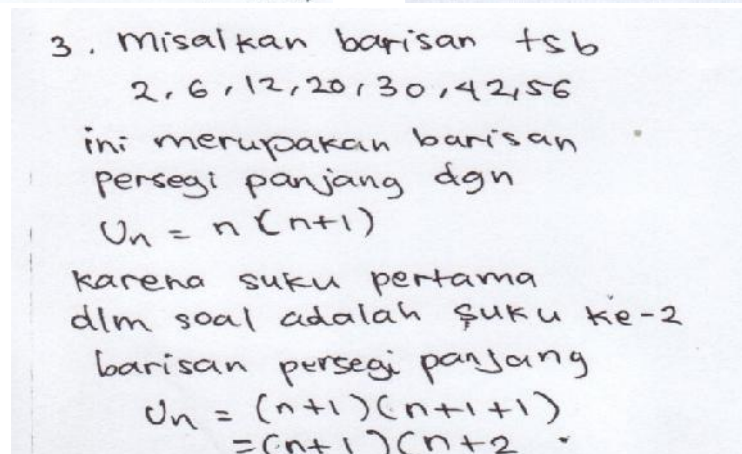 3. Misalkan barisan tsb
2, 6, 12, 20, 30, 42, 56
ini merupakan barisan
persegi panjang dgn
Un = n (n+1)
Karena suku pertama
dlm soal adalah suku ke-2
barisan persegi panjang
Un = (n+1)(n+1+1)
=(n+1)(n+2